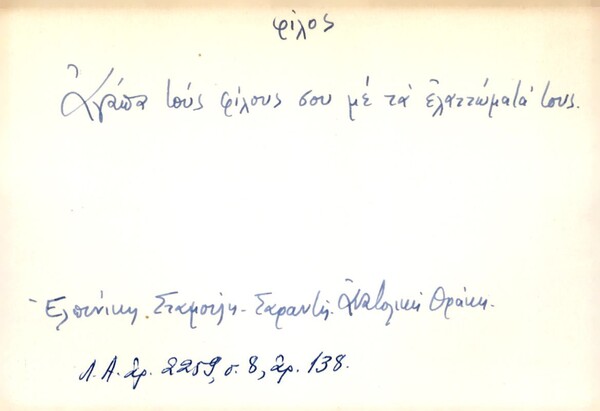 φίλος
Ἀγάπα τούς φίλους σου μέ τά ἐλαττώματά τους.
Ἐλπινίκη Σταμούλη-Σαραντῆ. Ἀνατολική Θράκη.
Λ.Α. ἀρ. 2259, σ. 8, ἀρ. 138.